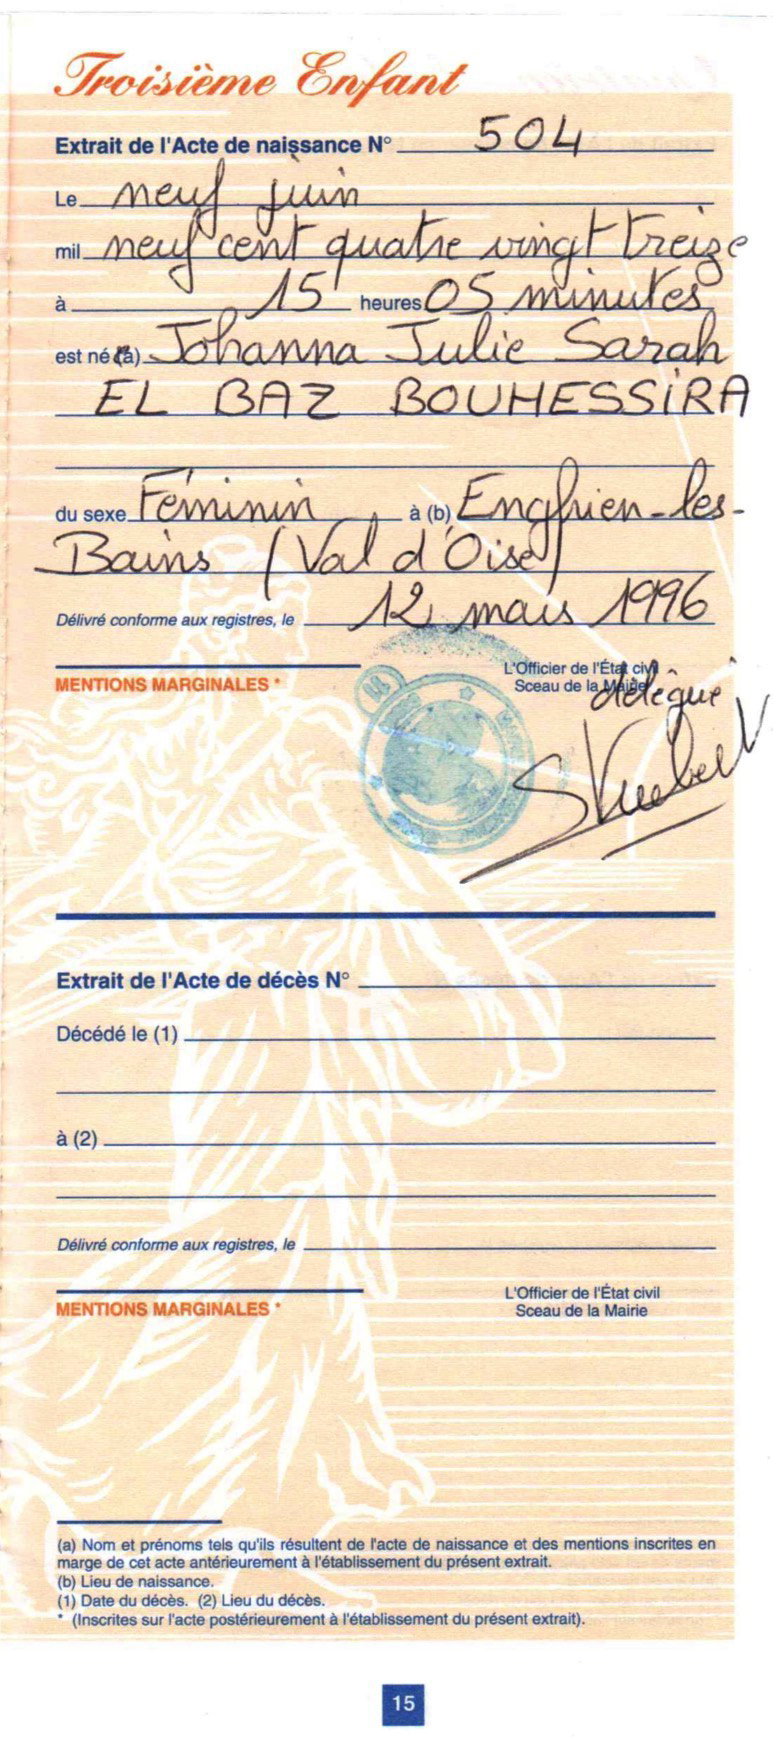 Troisième Enfant
Extrait de l'Acte de naissance N° 504
Le neuf juin
mil neuf cent quatre vingt treize
à 15 heures 05 minutes
est né(a) Johanna Julie Sarah
EL BAZ BOUHESSIRA
du sexe Féminin à (b) Enghien-les-
Bains (Val d'Oise)
Délivré conforme aux registres, le 12 mars 1996
MENTIONS MARGINALES *
L'Officier de l'État civil
Sceau de la Mairie
délégué
Extrait de l'Acte de décès N°
Décédé le (1)
à (2)
Délivré conforme aux registres, le
MENTIONS MARGINALES *
L'Officier de l'État civil
Sceau de la Mairie
(a) Nom et prénoms tels qu'ils résultent de l'acte de naissance et des mentions inscrites en
marge de cet acte antérieurement à l'établissement du présent extrait.
(b) Lieu de naissance.
(1) Date du décès. (2) Lieu du décès.
* (Inscrites sur l'acte postérieurement à l'établissement du présent extrait).
15